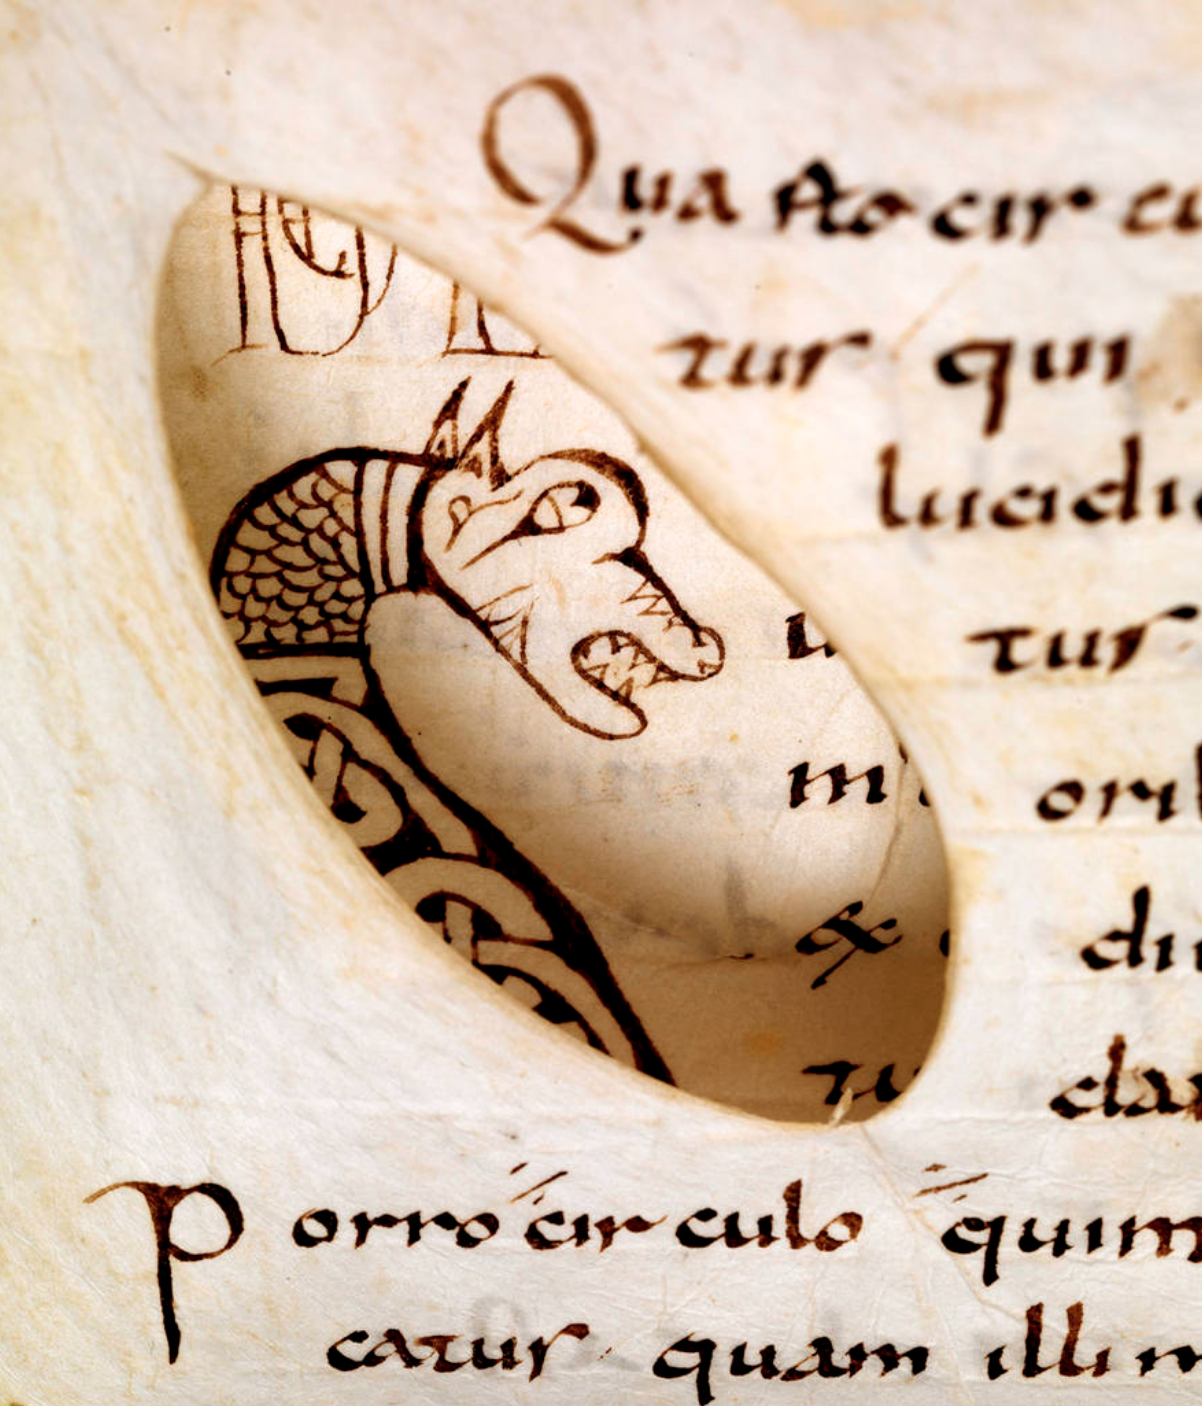 Qua facto cir cu
tur qui
lucidi
tur
m
orib
&
di
tu
clau
Porro cir culo quim
catur quam illi m